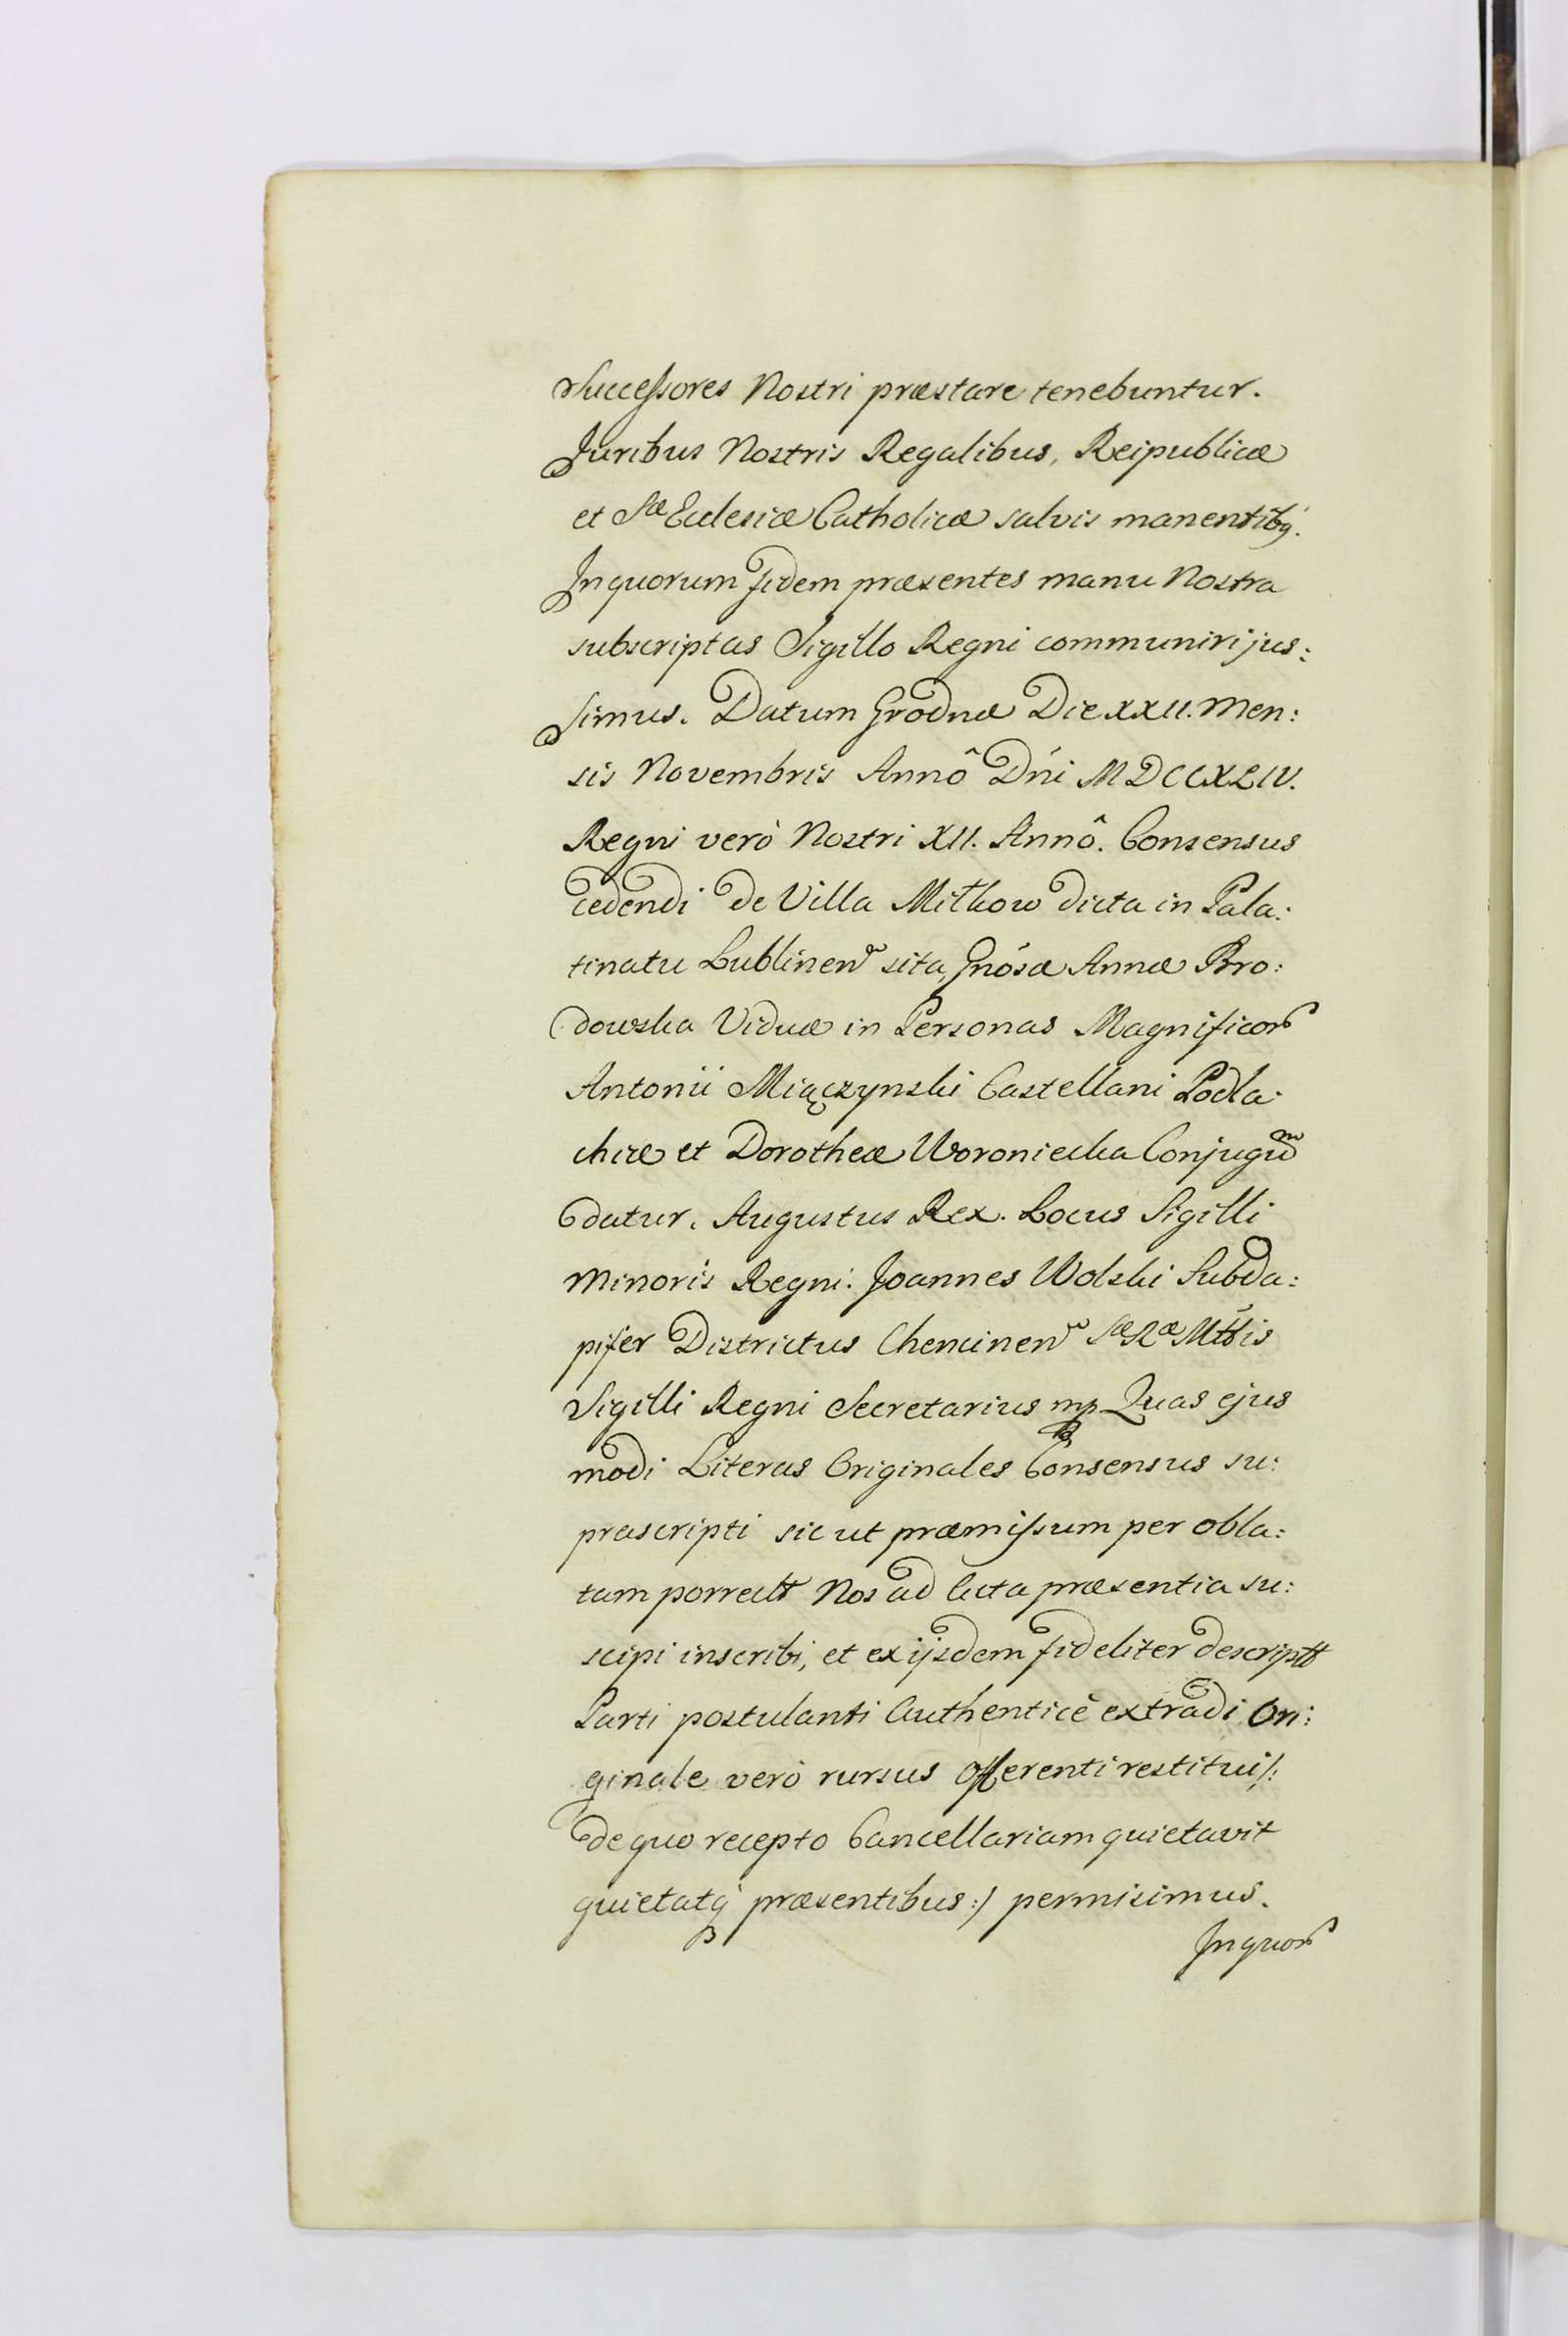 Successores Nostri præstare tenebuntur.
Juribus Nostris Regalibus, Reipublicæ
et Sæ Ecclesiæ Catholicæ salvis manentibq.
In quorum fidem præsentes manu Nostra
subscriptas Sigillo Regni communiri jus:
simus. Datum Grodnæ Die XXII. Men:
sis Novembris Annô Dni MDCCXLIV.
Regni verò Nostri XII. Annô. Consensus
cedendi de Villa Mełkow dicta in Pala:
tinatu Lublinen sita, Gnosæ Annæ Bro:
dowska Viduæ in Personas Magnificor
Antonii Miączynski Castellani Podla:
chiæ et Dorotheæ Woroniecka Conjugum
datur. Augustus Rex. Locus Sigilli
Minoris Regni. Joannes Wolski Subda:
pifer Districtus Chencinen Sæ Ræ Mttis
Sigilli Regni Secretarius mp Quas ejus
modi Literas Originales Consensus su:
prascripti sic ut præmissum per obla:
tam porrectt Nos ad Acta præsentia su:
scipi inscribi, et ex ijsdem fideliter descriptt
Parti postulanti Authenticè extradi Ori:
ginale verò rursus Offerenti restitui /:
de quo recepto Cancellariam quietavit
quietatq præsentibus :/ permisimus.
In quor